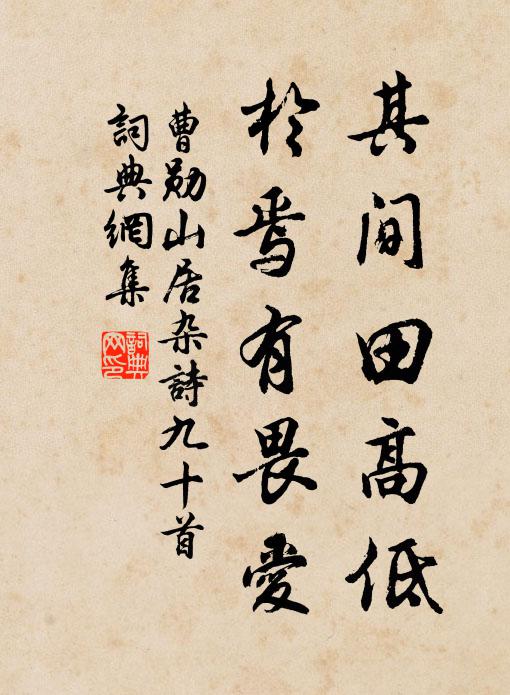 其间田高低
於焉有畏愛
曹勛山居杂詩九十首
詞典網集
詞典
网印